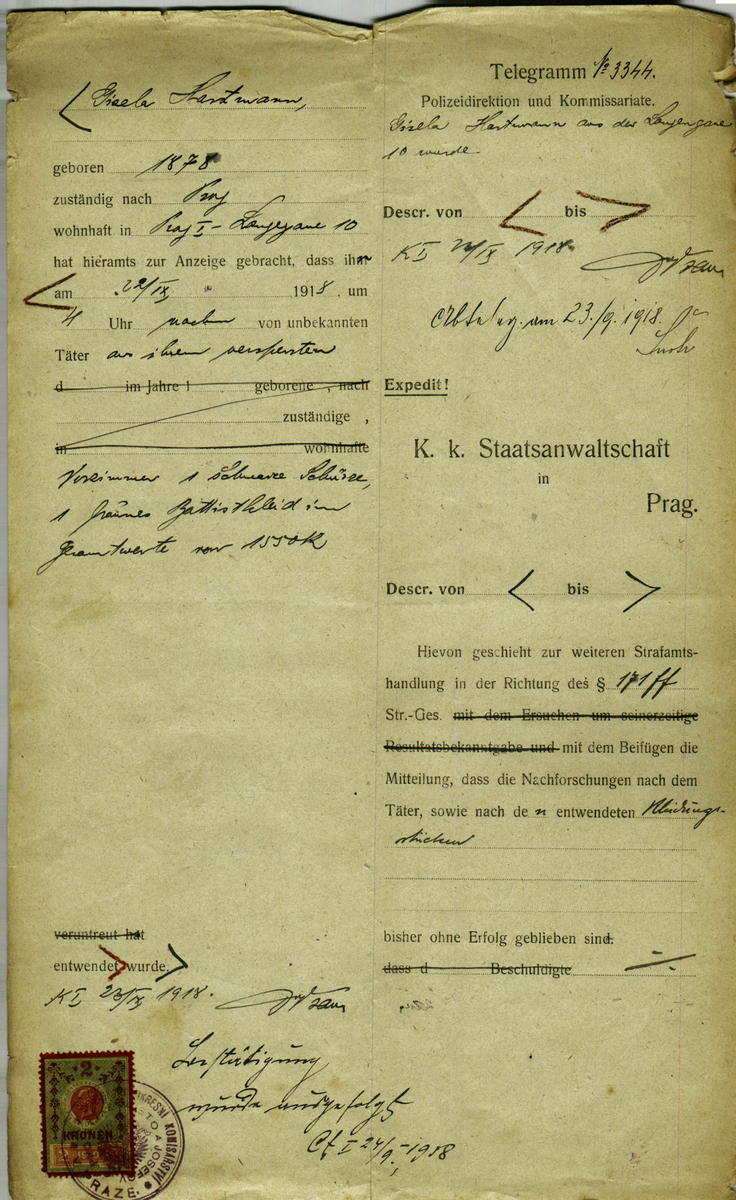 Gisela Hartmann,
geboren 1878
zuständig nach Prag
wohnhaft in Prag I - Langegasse 10
hat hieramts zur Anzeige gebracht, dass ihr
am 22/IX 1918, um
4 Uhr nachm von unbekannten
Täter aus ihrem versperrten
d im Jahre 1 geborene, nach
zuständige,
in wohnhafte
Vorzimmer 1 schwarze Schürze,
1 Battistkleid im
Gesamtwerte von 1550K
veruntreut hat
entwendet wurde.
KI 23/IX 1918.
Bestätigung
wurde ausgefolgt
I 24/9 1918
2
KRONEN
OKRESNÍ KOMISAŘSTVÍ
PRAZE.
Telegramm № 3344.
Polizeidirektion und Kommissariate.
Gisela Hartmann aus der Langengasse
10 wurde.
Descr. von bis
KI 23/IX 1918.
am 23./9. 1918.
Expedit!
K. k. Staatsanwaltschaft
in
Prag.
Descr. von bis
Hievon geschieht zur weiteren Strafamts-
handlung in der Richtung des § 171 ff
Str.-Ges. mit dem Ersuchen um seinerzeitige
Resultatsbekanntgabe und mit dem Beifügen die
Mitteilung, dass die Nachforschungen nach dem
Täter, sowie nach de n entwendeten Kleidungs-
stücken
bisher ohne Erfolg geblieben sind.
dass d Beschuldigte